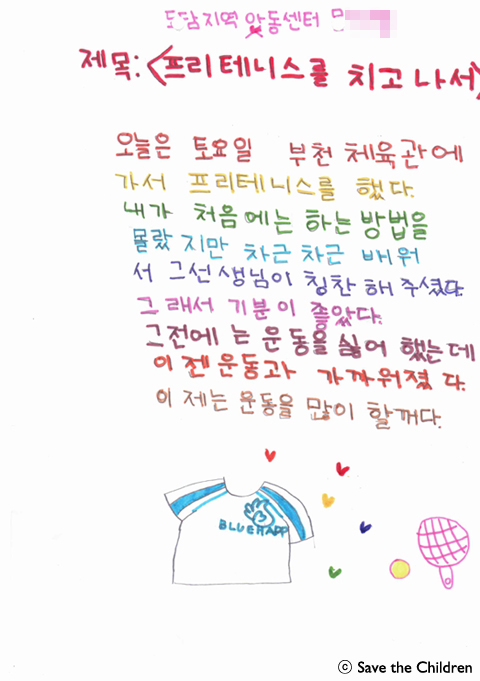 도담지역 아동센터
제목:<프리테니스를 치고 나서>
오늘은 토요일 부천 체육관에
가서 프리테니스를 했다.
내가 처음에는 하는 방법을
몰랐지만 차근 차근 배워
서 그선생님이 칭찬 해 주셨다.
그래서 기분이 좋았다.
그전에 는 운동을 싫어 했는데
이젠 운동과 가까워졌 다.
이 제는 운동을 많이 할꺼다.
BLUEHAPP
ⓒ Save the Children